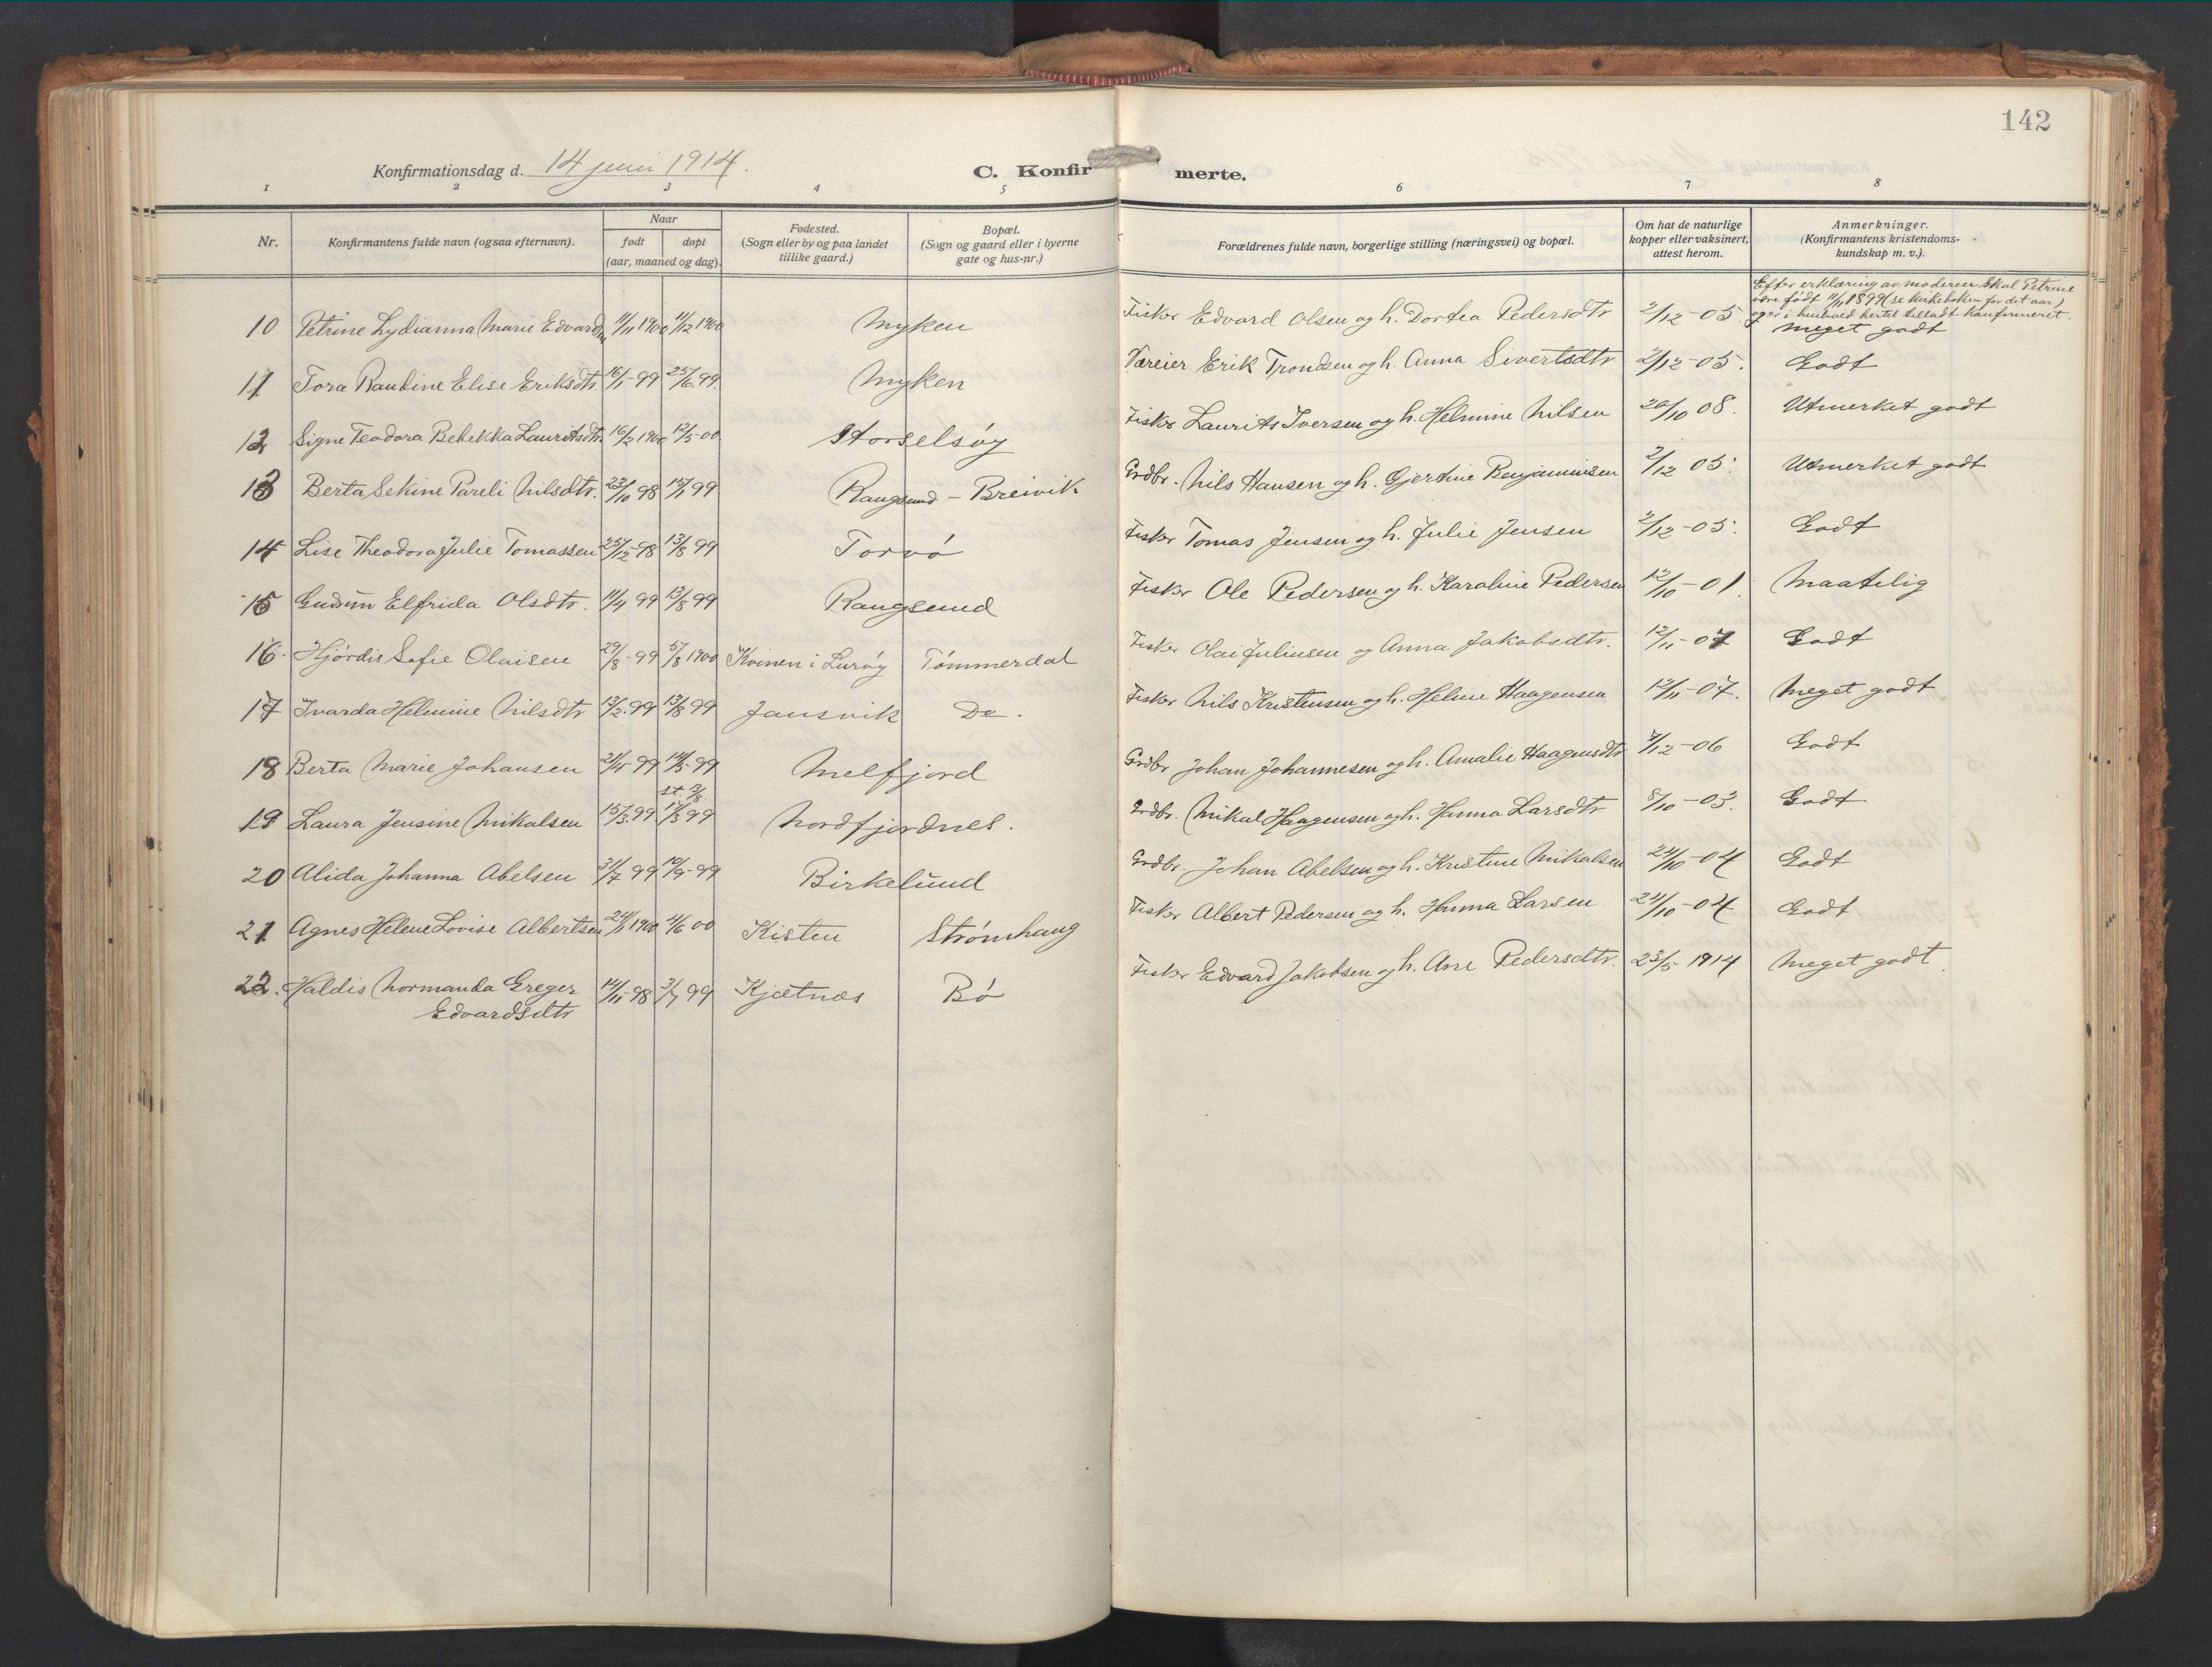 142
Konfirmationsdag d. 14 juni 1914.
C. Konfirmerte.
1 2 3 4 5 6 7 8
Nr.
Konfirmantens fulde navn (ogsaa efternavn).
Naar
født
døpt
(aar, maaned og dag).
Fødested.
(Sogn eller by og paa landet
tillike gaard.)
Bopæl.
(Sogn og gaard eller i byerne
gate og hus-nr.)
Forældrenes fulde navn, borgerlige stilling (næringsvei) og bopæl.
Om hat de naturlige
kopper eller vaksinert,
attest herom.
Anmerkninger.
(Konfirmantens kristendoms-
kundskap m. v.).
Efter erklæring av moderen skal Petrine
være født 11/11 1899 (se kirkeboken for det aar)
og er i henhold hertil tilladt konfirmeret.
10 Petrine Lydianna Marie Edvardsdtr 11/11 1900 11/12 1900 Myken Fisker Edvard Olsen og h. Dortea Pedersdtr 2/12-05 Meget godt
11 Tora Raudine Elise Eriksdtr. 16/1-99 25/6.99. Myken Væreier Erik Trondsen og h. Anna Sivertsdtr 2/12-05. Godt
12 Signe Teodora Bebekka Lauritsdtr. 16/2 1900 12/5-00. Storselsøy Fisker Laurits Iversen og h. Helmine Nilsen 20/10 08. Utmerket godt
13 Berta Sekine Pareli Nilsdtr. 23/10 98 15/1 99 Rangsund - Breivik Grdbr. Nils Hansen og h. Gjertine Benjaminsen 2/12 05. Utmerket godt
14 Lise Theodora Julie Tomassen 25/12-98 13/8 99 Torvø Fisker Tomas Jensen og h. Julie Jensen 2/12-05. Godt
15 Gudrun Elfrida Olsdtr. 11/4 99 13/8 99 Rangsund Fisker Ole Pedersen og h. Karoline Pedersen 12/10-01. Maatelig
16. Hjørdis Sofie Olaisen 29/8-99 5/8 1900 Kvinen i Lurøy Tømmerdal Fisker Olai Juliusen og Anna Jakobsdtr. 12/11-07 Godt
17 Ivarda Helmine Nilsdtr 13/2.99 13/8 99 Jansvik Do. Fisker Nils Kristensen og h. Heline Haagensen 12/11-07. Meget godt
18 Berta Marie Johansen 21/4 99 14/5-99 Melfjord Grdbr Johan Johannesen og h. Amalie Haagensdtr 7/12-06 Godt
19 Laura Jensine Mikalsen 15/3.99. 17/3 99 Nordfjordnes. Grdbr. Mikal Haagensen og h. Hanna Larsdtr 8/10-03. Godt
20 Alida Johanna Abelsen 31/7 99 10/9-99 Birkelund Grdbr. Johan Abelsen og h. Kristine Mikalsen 24/10-04 Godt
21 Agnes Helene Lovise Albertsen 24/1 1900 4/6 00 Kisten Strømhaug Fisker Albert Pedersen og h. Hanna Larsen 24/10-04 Godt
22. Haldis Normanda Greger 14/11-98 3/7 99 Kjætnæs Bø Fisker Edvard Jakobsen og h. Ane Pedersdtr. 23/5 1914 Meget godt
Edvardsdtr